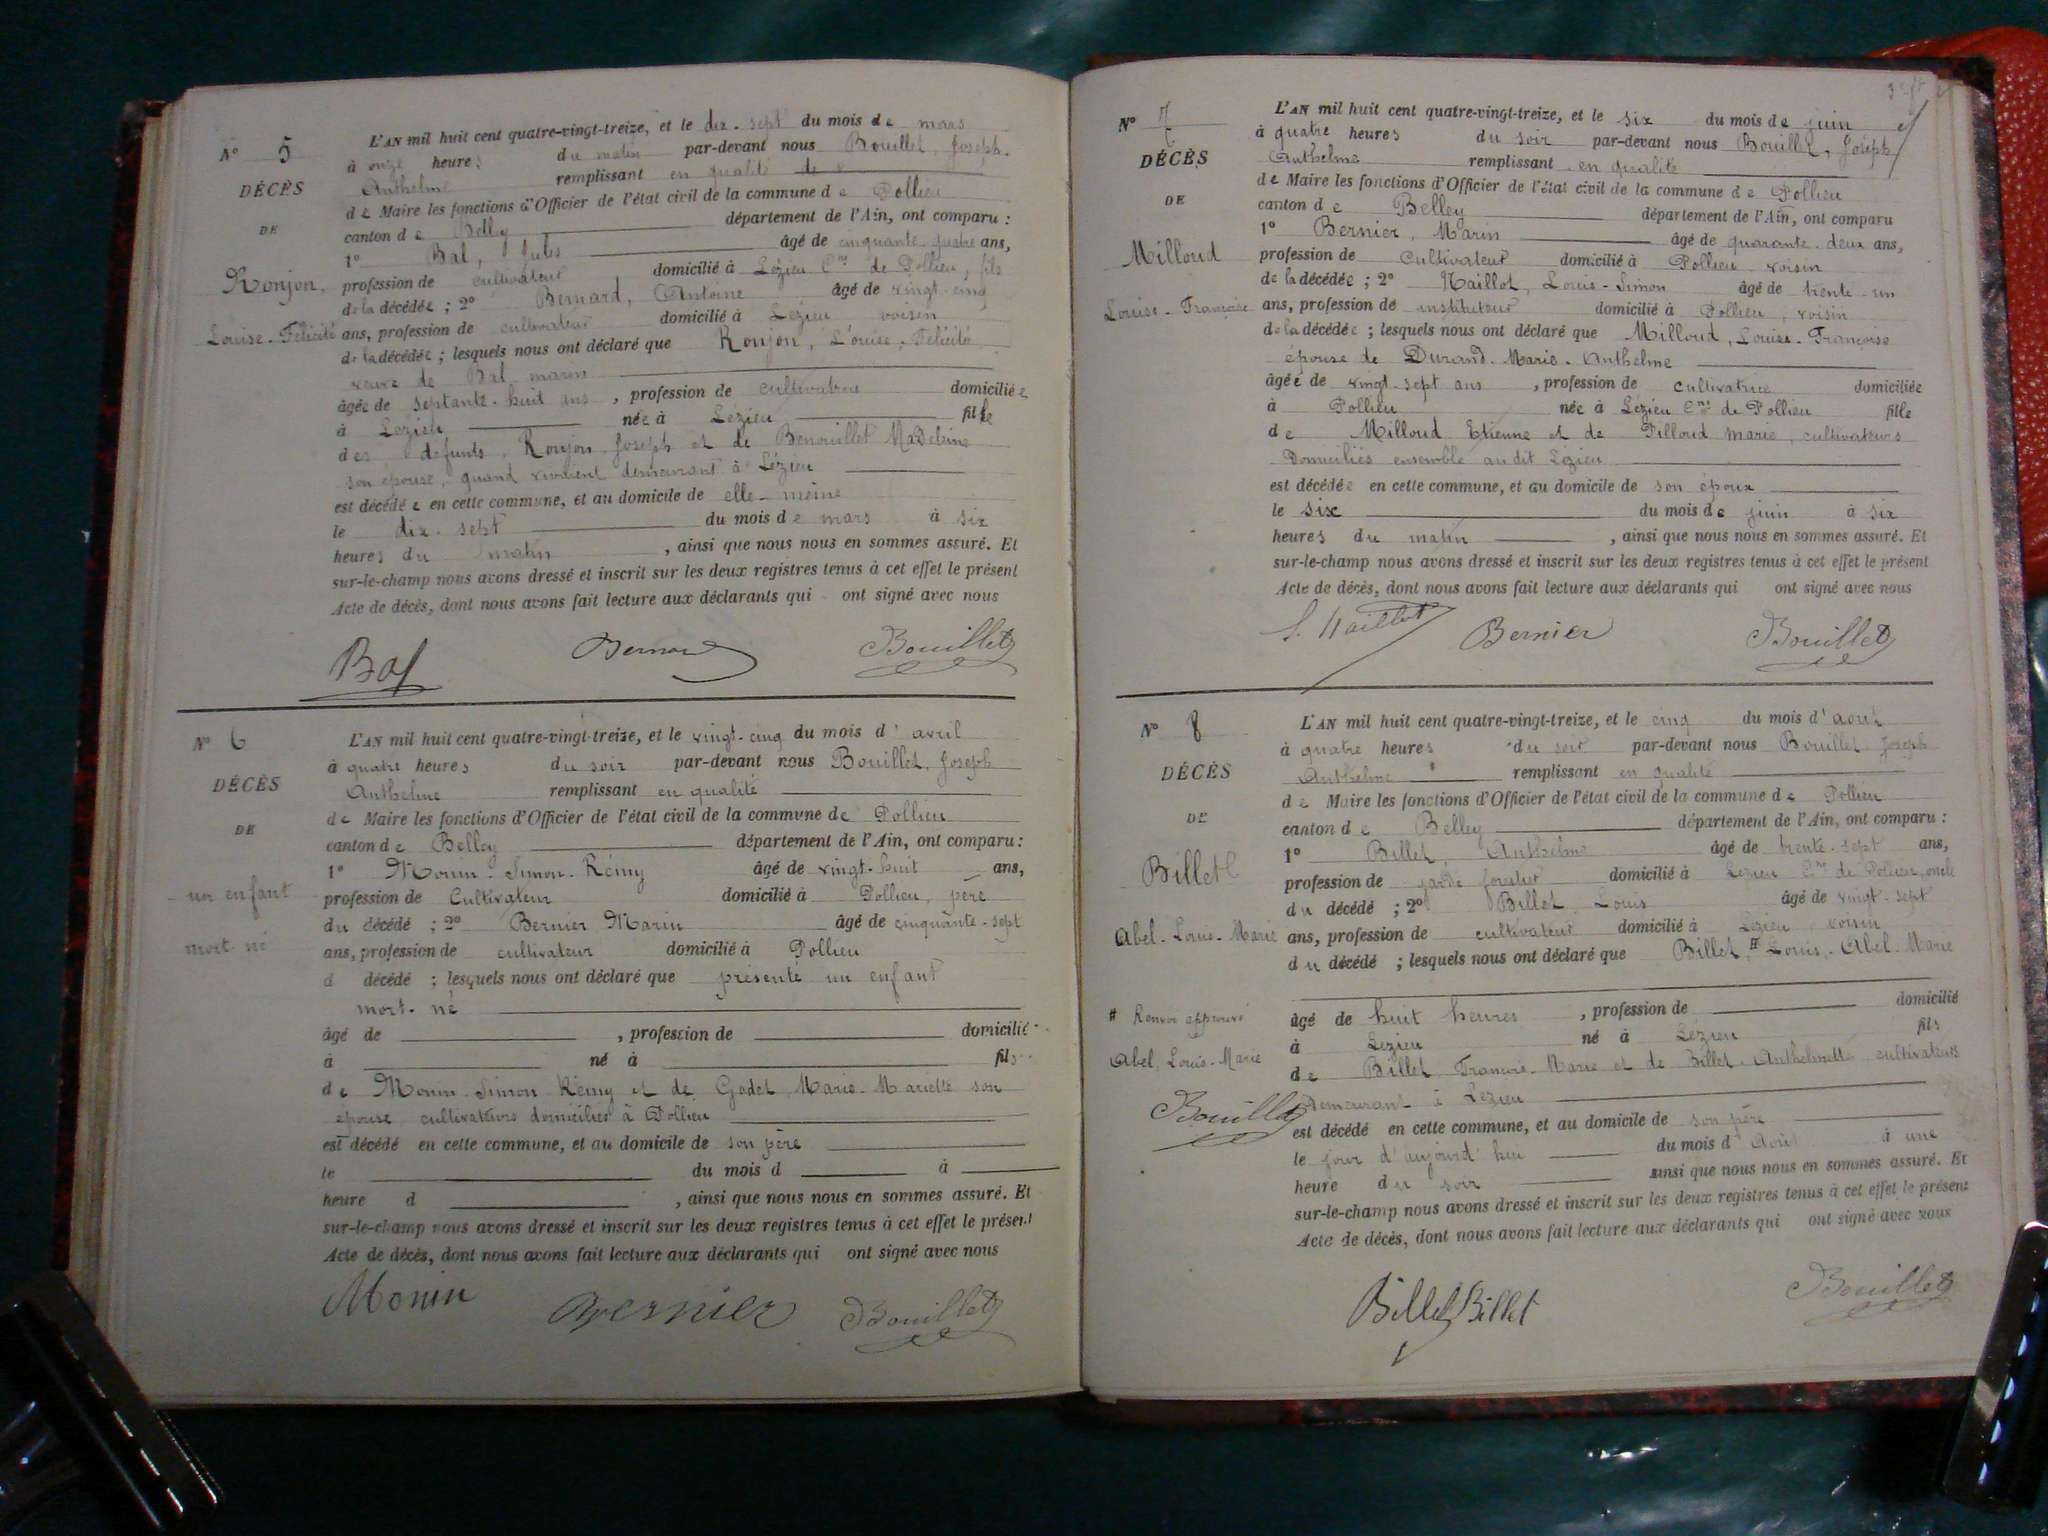 N° 5
DÉCÈS
DE
Ronjon,
Louise-Félicité
L'AN mil huit cent quatre-vingt-treize, et le dix-sept du mois de mars
à onze heures du matin par-devant nous Bouillet, Joseph-
Anthelme remplissant en qualité de
de Maire les fonctions d'Officier de l'état civil de la commune de Pollieu
canton de Belley département de l'Ain, ont comparu :
1° Bal, Jules âgé de cinquante-quatre ans,
profession de cultivateur domicilié à Lézieu Cne de Pollieu, fils
de la décédée ; 2° Bernard, Antoine âgé de vingt-cinq
ans, profession de cultivateur domicilié à Lézieu voisin
de la décédée ; lesquels nous ont déclaré que Ronjon, Louise-Félicité
veuve de Bal marin
âgée de septante-huit ans, profession de cultivatrice domiciliée
à Lézieu née à Lezieu fille
des défunts, Ronjon, Joseph et de Benouillet Madeleine
son épouse, quand vivaient demeurant à Lézieu
est décédée en cette commune, et au domicile de elle-même
le dix-sept du mois de mars à six
heures du matin, ainsi que nous nous en sommes assuré. Et
sur-le-champ nous avons dressé et inscrit sur les deux registres tenus à cet effet le présent
Acte de décès, dont nous avons fait lecture aux déclarants qui ont signé avec nous
Bal Bernard Bouillet
N° 6
DÉCÈS
DE
un enfant
mort-né
L'AN mil huit cent quatre-vingt-treize, et le vingt-cinq du mois d'avril
à quatre heures du soir par-devant nous Bouillet, Joseph
Anthelme remplissant en qualité
de Maire les fonctions d'Officier de l'état civil de la commune de Pollieu
canton de Belley département de l'Ain, ont comparu :
1° Monin-Simon-Rémy âgé de vingt-huit ans,
profession de Cultivateur domicilié à Pollieu, père
du décédé ; 2° Bernier Marin âgé de cinquante-sept
ans, profession de cultivateur domicilié à Pollieu
d décédé ; lesquels nous ont déclaré que présenté un enfant
mort-né
âgé de , profession de domicilié
à né à fils
de Monin-Simon Rémy et de Godet Marie-Mariette son
épouse, cultivateurs domiciliés à Pollieu
est décédé en cette commune, et au domicile de son père
le du mois d à
heure d , ainsi que nous nous en sommes assuré. Et
sur-le-champ nous avons dressé et inscrit sur les deux registres tenus à cet effet le présent
Acte de décès, dont nous avons fait lecture aux déclarants qui ont signé avec nous
Monin Bernier Bouillet
N° 7
DÉCÈS
DE
Milloud
Louise-Françoise
L'AN mil huit cent quatre-vingt-treize, et le six du mois de juin
à quatre heures du soir par-devant nous Bouillet, Joseph
Anthelme remplissant en qualité
de Maire les fonctions d'Officier de l'état civil de la commune de Pollieu
canton de Belley département de l'Ain, ont comparu
1° Bernier, Marin âgé de quarante-deux ans,
profession de Cultivateur domicilié à Pollieu voisin
de la décédée ; 2° Maillot, Louis-Simon âgé de trente-un
ans, profession de instituteur domicilié à Pollieu, voisin
de la décédée ; lesquels nous ont déclaré que Milloud, Louise-Françoise
épouse de Durand-Marie-Anthelme
âgée de vingt-sept ans, profession de cultivatrice domiciliée
à Pollieu née à Lézieu Cne de Pollieu fille
de Milloud Etienne et de Pilloud marie, cultivateurs
Domiciliés ensemble audit Lezieu
est décédée en cette commune, et au domicile de son époux
le six du mois de juin à six
heures du matin, ainsi que nous nous en sommes assuré. Et
sur-le-champ nous avons dressé et inscrit sur les deux registres tenus à cet effet le présent
Acte de décès, dont nous avons fait lecture aux déclarants qui ont signé avec nous
Bernier Bouillet
N° 8
DÉCÈS
DE
Billet
Abel-Louis-Marie
# Renvoi approuvé
Abel, Louis-Marie
Bouillet
L'AN mil huit cent quatre-vingt-treize, et le cinq du mois d'août
à quatre heures du soir par-devant nous Bouillet Joseph
Anthelme remplissant en qualité
de Maire les fonctions d'Officier de l'état civil de la commune de Pollieu
canton de Belley département de l'Ain, ont comparu :
1° Billet, Anthelme âgé de trente-sept ans,
profession de garde forestier domicilié à Lezieu Cne de Pollieu, oncle
du décédé ; 2° Billet Louis âgé de vingt-sept
ans, profession de cultivateur domicilié à Lezieu, voisin
du décédé ; lesquels nous ont déclaré que Billet, # Louis-Abel-Marie
âgé de huit heures, profession de domicilié
à Lezieu né à Lezieu fils
de Billet, Francois-Marie et de Billet Anthelmette cultivateurs
demeurant à Lezieu
est décédé en cette commune, et au domicile de son père
le jour d'aujourd'hui du mois d'Août à une
heure du soir ainsi que nous nous en sommes assuré. Et
sur-le-champ nous avons dressé et inscrit sur les deux registres tenus à cet effet le présent
Acte de décès, dont nous avons fait lecture aux déclarants qui ont signé avec nous
Billet Billet Bouillet